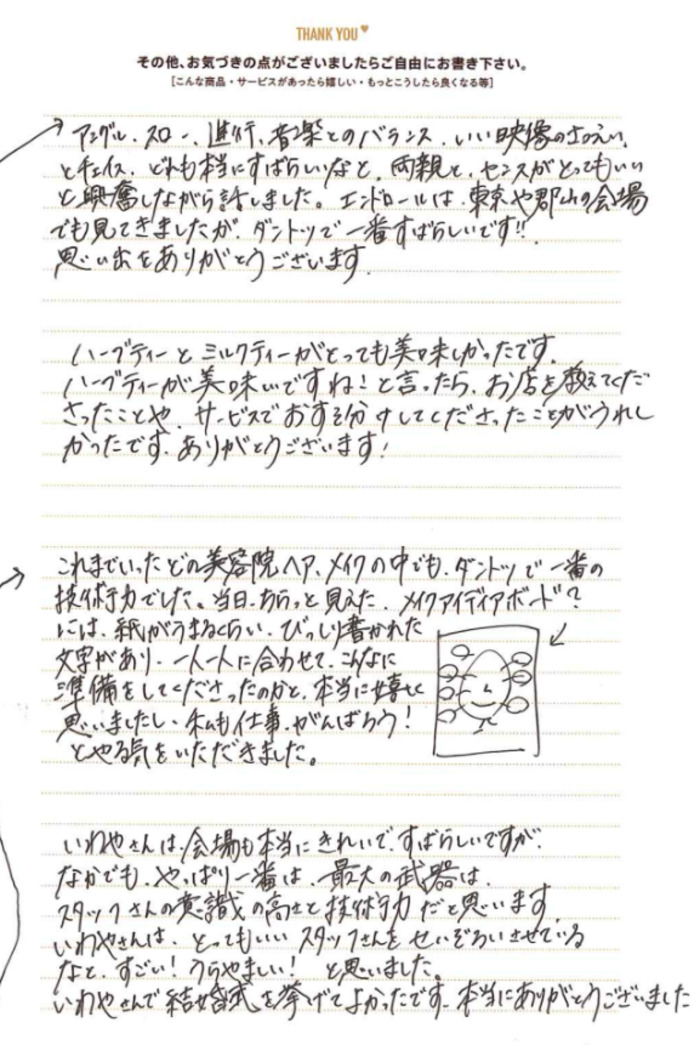 THANK YOU♥
その他、お気づきの点がございましたらご自由にお書き下さい。
[こんな商品・サービスがあったら嬉しい・もっとこうしたら良くなる等]
アングル、スロー、進行、音楽とのバランス、いい映像のさつえい
とチョイス、どれも本当にすばらしいなと、両親と、センスがとってもいい
と興奮しながら話しました。エンドロールは、東京や郡山の会場
でも見てきましたが、ダントツで一番すばらしいです!!
思い出をありがとうございます。
ハーブティーとミルクティーがとっても美味しかったです。
ハーブティーが美味しいですね!と言ったら、お店を教えてくだ
さったことや、サービスでおすそ分けしてくださったことがうれし
かったです。ありがとうございます!
これまでいったどの美容院、ヘア、メイクの中でも、ダントツで一番の
技術力でした。当日、ちらっと見えた、メイクアイディアボード?
には、紙がうまるくらい、びっしり書かれた
文字があり、一人一人に合わせて、こんなに
準備をしてくださったのかと、本当に嬉しく
思いましたし、私も仕事、がんばろう!
とやる気をいただきました。
いわやさんは、会場も本当にきれいで、すばらしいですが、
なかでも、やっぱり一番は、最大の武器は、
スタッフさんの意識の高さと技術力だと思います。
いわやさんは、とってもいいスタッフさんをせいぞろいさせている
なと、すごい!うらやましい!と思いました。
いわやさんで結婚式を挙げてよかったです。本当にありがとうございました